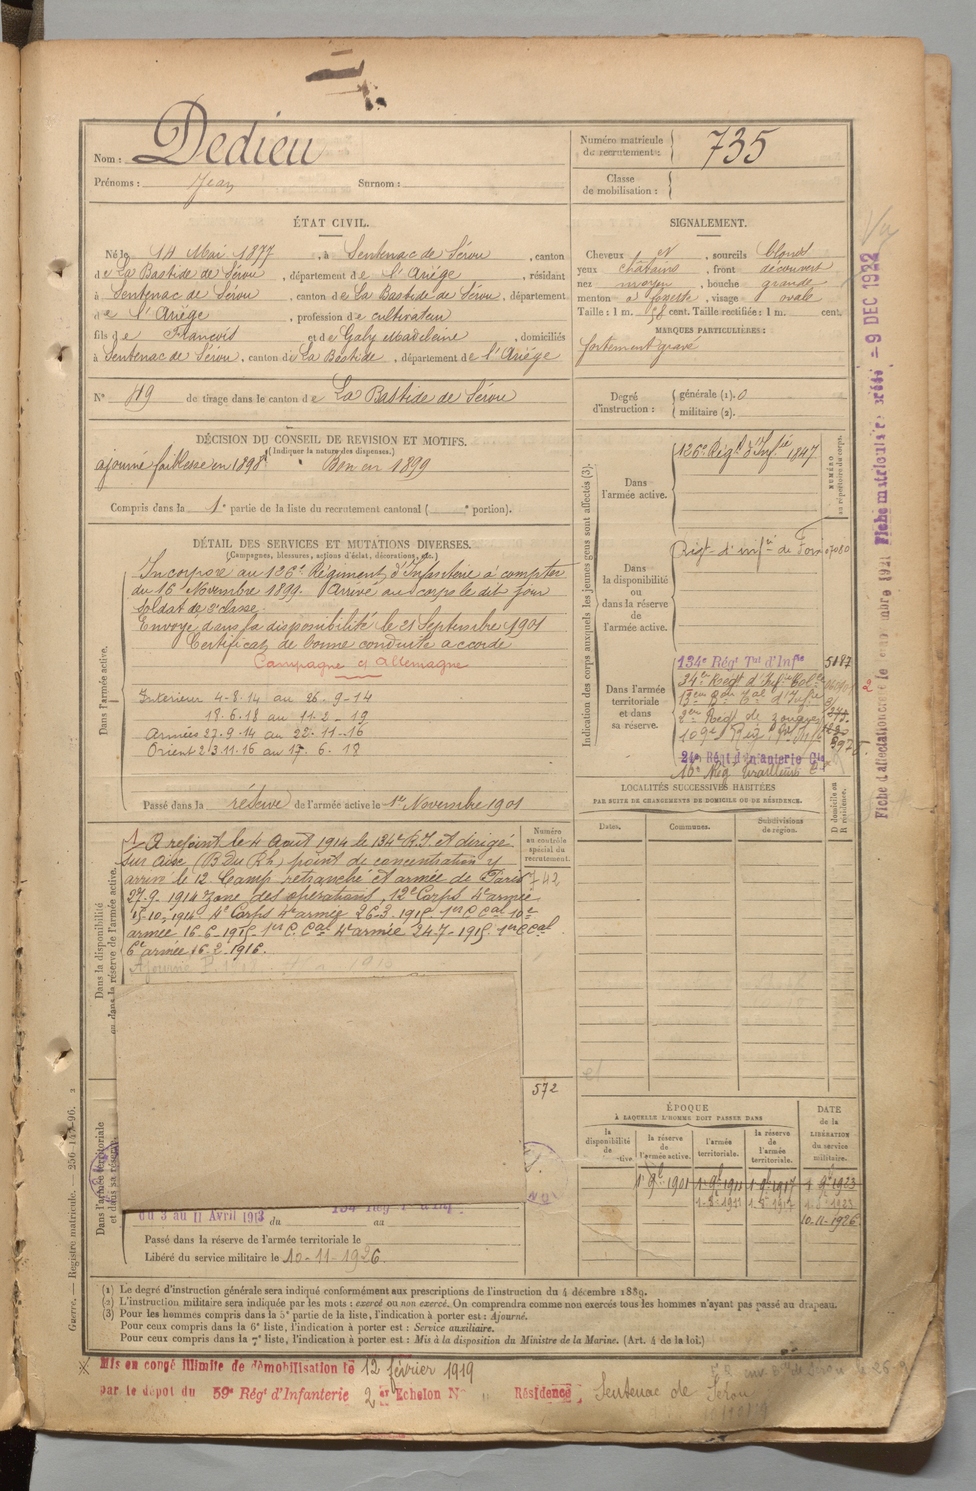 Nom : Dedieu
Prénoms : Jean Surnom :
Numéro matricule du recrutement : 735
Classe de mobilisation :
ÉTAT CIVIL.
Né le 14 Mai 1877, à Sentenac de Sérou, canton
de La Bastide de Sérou, département de l'Ariège, résidant
à Sentenac de Sérou, canton de La Bastide de Sérou, département
de l'Ariège, profession de cultivateur
fils de François et de Galy Madelaine, domiciliés
à Sentenac de Sérou, canton de La Bastide, département de l'Ariége
N° 49 de tirage dans le canton de La Bastide de Sérou
SIGNALEMENT.
Cheveux et, sourcils blond
yeux châtains, front découvert
nez moyen, bouche grande
menton à fossette, visage ovale
Taille : 1 m. 58 cent. Taille rectifiée : 1 m. cent.
MARQUES PARTICULIÈRES :
fortement gravé
Degré d'instruction : générale (1). 0
militaire (2).
DÉCISION DU CONSEIL DE REVISION ET MOTIFS.
(Indiquer la nature des dispenses.)
ajourné faiblesse en 1898 Bon en 1899
Compris dans la 1e partie de la liste du recrutement cantonal ( e portion).
DÉTAIL DES SERVICES ET MUTATIONS DIVERSES.
(Campagnes, blessures, actions d'éclat, décorations, etc.)
Dans l'armée active.
Incorporé au 126e Régiment d'Infanterie à compter
du 16 Novembre 1899. Arrivé au corps le dit jour
soldat de 2e classe.
Envoyé dans la disponibilité le 21 Septembre 1901
Certificat de bonne conduite accordé
Campagne c/ Allemagne
Intérieur 4-8-14 au 26-9-14
18.6.18 au 11-2-19
Armées 27-9-14 au 22-11-16
Orient 23.11.16 au 17.6.18
Passé dans la réserve de l'armée active le 1er Novembre 1901
Dans la disponibilité ou dans la réserve de l'armée active.
A rejoint le 4 Aout 1914 le 134e R.I et dirigé
sur Aix (B Du Rh) point de concentration y
arrivé le 12. Camp retranché et armée de Paris
27-9-1914 zone des opérations, 12e Corps 4e armée
15-10-1914 4e Corps 4e armée 26-3-1915 1er C Cal 10e
armée 16-6-1915 1er C. Cal 4e armée 24-7-1915 1er C Cal
6e armée 16-2-1916.
Numéro au contrôle spécial du recrutement.
742
572
Dans l'armée territoriale et dans sa réserve
du 3 au 11 Avril 1913 du au
Passé dans la réserve de l'armée territoriale le
Libéré du service militaire le 10-11-1926
Indication des corps auxquels les jeunes gens sont affectés (3).
NUMÉRO au répertoire du corps.
Dans l'armée active.
126e Régt d'Infie 1847
Dans la disponibilité ou dans la réserve de l'armée active.
Régt d'infie de Foix
Dans l'armée territoriale et dans sa réserve.
134e Régt Tal d'Infie 5187
34e Régt d'Infie Colle
2em Régt de zouaves
109e Rég
24e Régt d'Infanterie Cle
10e Rég Tirailleurs
LOCALITÉS SUCCESSIVES HABITÉES
PAR SUITE DE CHANGEMENTS DE DOMICILE OU DE RÉSIDENCE.
Dates. Communes. Subdivisions de région. D domicile ou R résidence.
ÉPOQUE
À LAQUELLE L'HOMME DOIT PASSER DANS
DATE de la LIBÉRATION du service militaire.
la disponibilité de l'active.
la réserve de l'armée active.
l'armée territoriale.
la réserve de l'armée territoriale.
1er 9bre 1901
10.11-1926
(1) Le degré d'instruction générale sera indiqué conformément aux prescriptions de l'instruction du 4 décembre 1889.
(2) L'instruction militaire sera indiquée par les mots : exercé ou non exercé. On comprendra comme non exercés tous les hommes n'ayant pas passé au drapeau.
(3) Pour les hommes compris dans la 5e partie de la liste, l'indication à porter est : Ajourné.
Pour ceux compris dans la 6e liste, l'indication à porter est : Service auxiliaire.
Pour ceux compris dans la 7e liste, l'indication à porter est : Mis à la disposition du Ministre de la Marine. (Art. 4 de la loi.)
Mis en congé illimité de démobilisation le 12 février 1919
par le dépôt du 59e Régt d'Infanterie 2 Echelon N° Résidence Sentenac de Sérou
Guerre. — Registre matricule. — 256-147-96.
Fiche matriculaire créée 9 DEC 1922